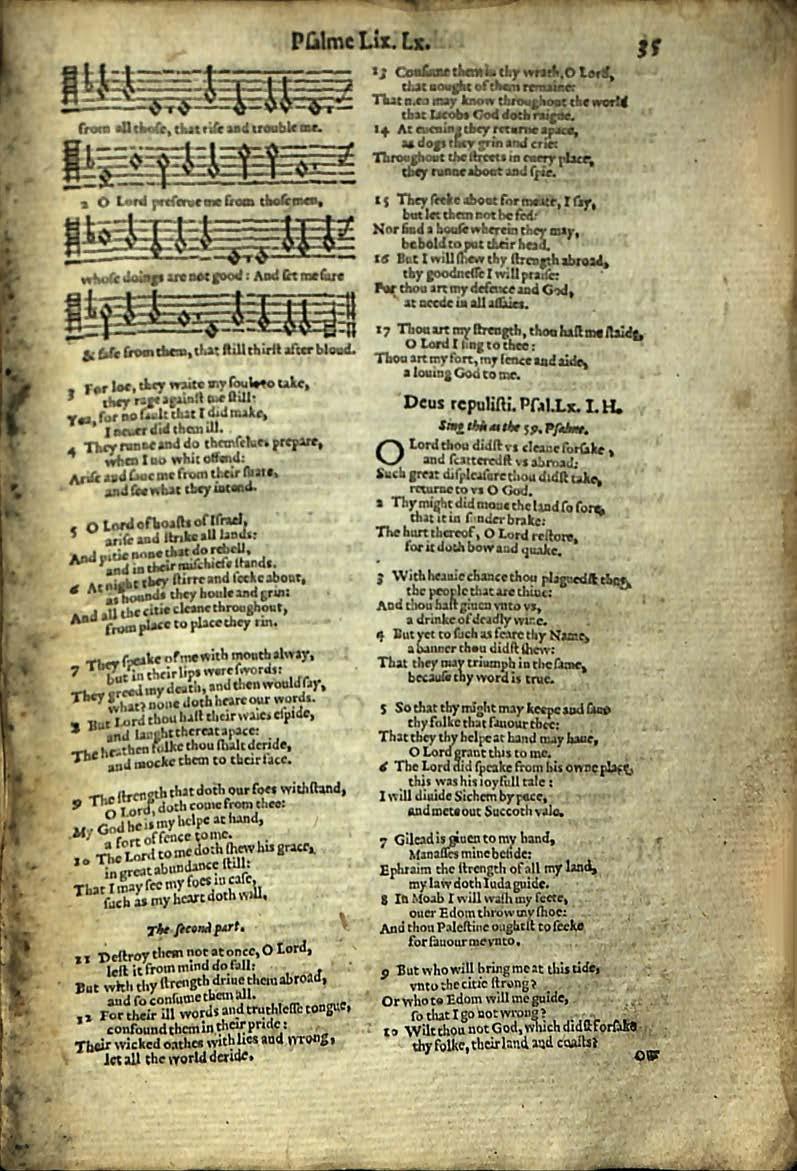 Pſalme Lix. Lx.
35
from all thoſe, that riſe and trouble me.
2 O Lord preſerue me from thoſe men,
whoſe doings are not good: And ſet me ſure
& ſafe from them, that ſtill thirſt after bloud.
3 For loe, they waite my ſoule to take,
they rage againſt me ſtill:
Yea, for no fault that I did make,
I neuer did them ill.
4 They runne and do themſelues prepare,
when I no whit offend:
Ariſe and ſaue me from their ſnare,
and ſee what they intend.
5 O Lord of hoaſts of Iſrael,
ariſe and ſtrike all lands:
And pitie none that do rebell,
and in their miſchiefe ſtands.
6 At night they ſtirre and ſeeke about,
as hounds they houle and grin:
And all the citie cleane throughout,
from place to place they rin.
7 They ſpeake of me with mouth alway,
but in their lips were ſwords:
They greed my death, and then would ſay,
what? none doth heare our words.
8 But Lord thou haſt their waies eſpide,
and laught thereat apace:
The heathen folke thou ſhalt deride,
and mocke them to their face.
9 The ſtrength that doth our foes withſtand,
O Lord, doth come from thee:
My God he is my helpe at hand,
a fort of fence to me.
10 The Lord to me doth ſhew his grace,
in great abundance ſtill:
That I may ſee my foes in caſe,
ſuch as my heart doth will.
The ſecond part.
11 Deſtroy them not at once, O Lord,
leſt it from mind do fall:
But with thy ſtrength driue them abroad,
and ſo conſume them all.
12 For their ill words and truthleſſe tongue,
confound them in their pride:
Their wicked oathes with lies and wrong,
let all the world deride.
13 Conſume them in thy wrath, O Lord,
that nought of them remaine:
That men may know throughout the world
that Iacobs God doth raigne.
14 At euening they returne apace,
as dogs they grin and crie:
Throughout the ſtreets in euery place,
they runne about and ſpie.
15 They ſeeke about for meate, I ſay,
but let them not be fed:
Nor find a houſe wherein they may,
be bold to put their head.
16 But I will ſhew thy ſtrength abroad,
thy goodneſſe I will praiſe:
For thou art my defence and God,
at neede in all aſſaies.
17 Thou art my ſtrength, thou haſt me ſtaide,
O Lord I ſing to thee:
Thou art my fort, my fence and aide,
a louing God to me.
Deus repuliſti. Pſal. Lx. I. H.
Sing this as the 59. Pſalme.
O Lord thou didſt vs cleane forſake,
and ſcatteredſt vs abroad:
Such great diſpleaſure thou didſt take,
returne to vs O God.
2 Thy might did moue the land ſo ſore,
that it in ſunder brake:
The hurt thereof, O Lord reſtore,
for it doth bow and quake.
3 With heauie chance thou plaguedſt thus,
the people that are thine:
And thou haſt giuen vnto vs,
a drinke of deadly wine.
4 But yet to ſuch as feare thy Name,
a banner thou didſt ſhew:
That they may triumph in the ſame,
becauſe thy word is true.
5 So that thy might may keepe and ſaue
thy folke that fauour thee:
That they thy helpe at hand may haue,
O Lord grant this to me.
6 The Lord did ſpeake from his owne place,
this was his ioyfull tale:
I will diuide Sichem by pace,
and mete out Succoth vale.
7 Gilead is giuen to my hand,
Manaſſes mine beſide:
Ephraim the ſtrength of all my land,
my law doth Iuda guide.
8 In Moab I will waſh my feete,
ouer Edom throw my ſhoe:
And thou Paleſtine oughtſt to ſeeke
for fauour me vnto.
9 But who will bring me at this tide,
vnto the citie ſtrong?
Or who to Edom will me guide,
ſo that I go not wrong?
10 Wilt thou not God, which didſt forſake
thy folke, their land and coaſts?